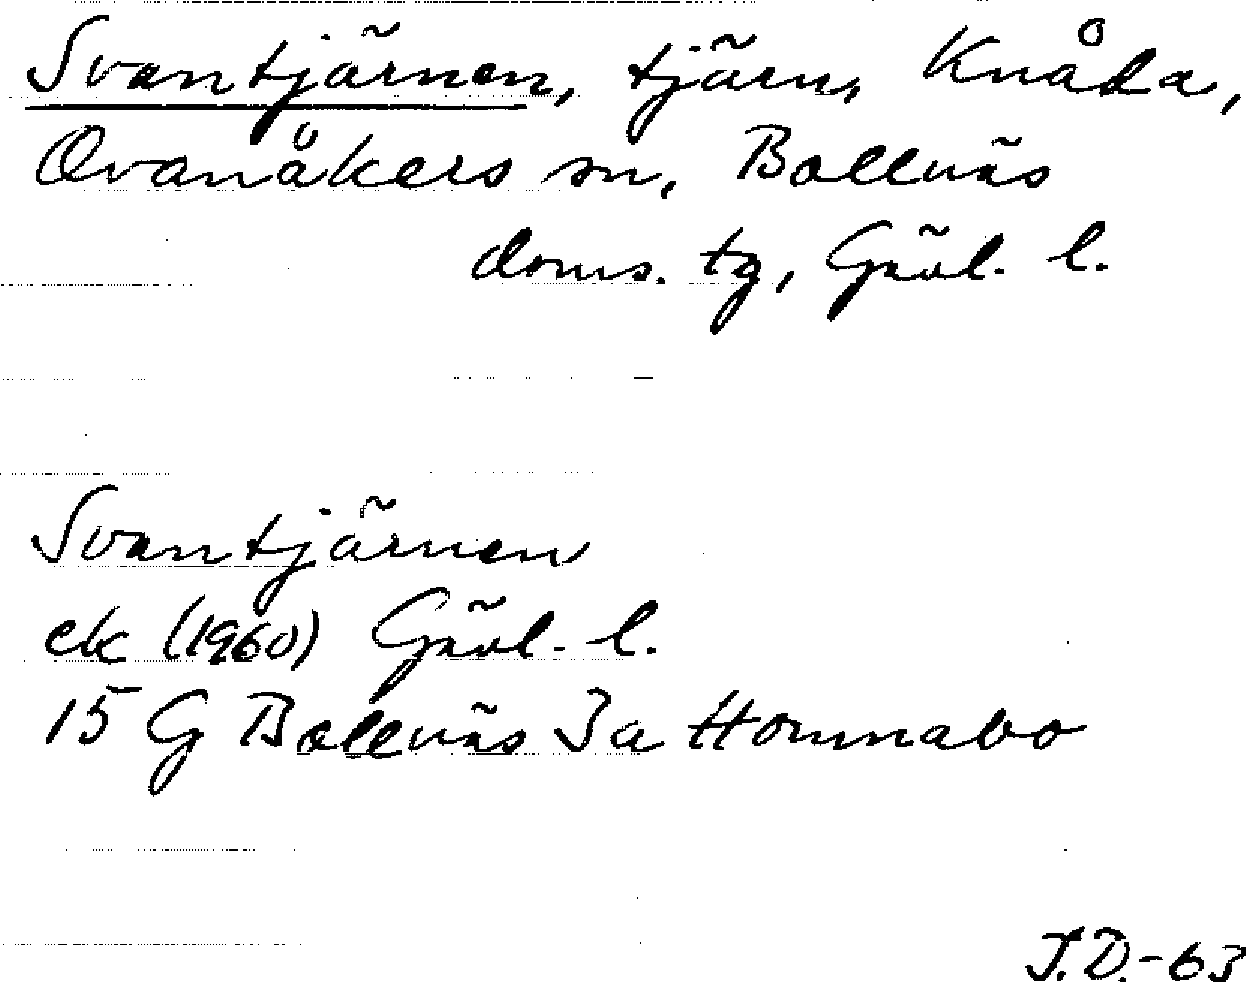 Svantjärnen, tjärn, Knåda,
Ovanåkers sn, Bollnäs
doms. tg, Gävl. l.
Svantjärnen
ek (1960) Gävl. l.
15 G Bollnäs 3a Homnabo
J.D.-63